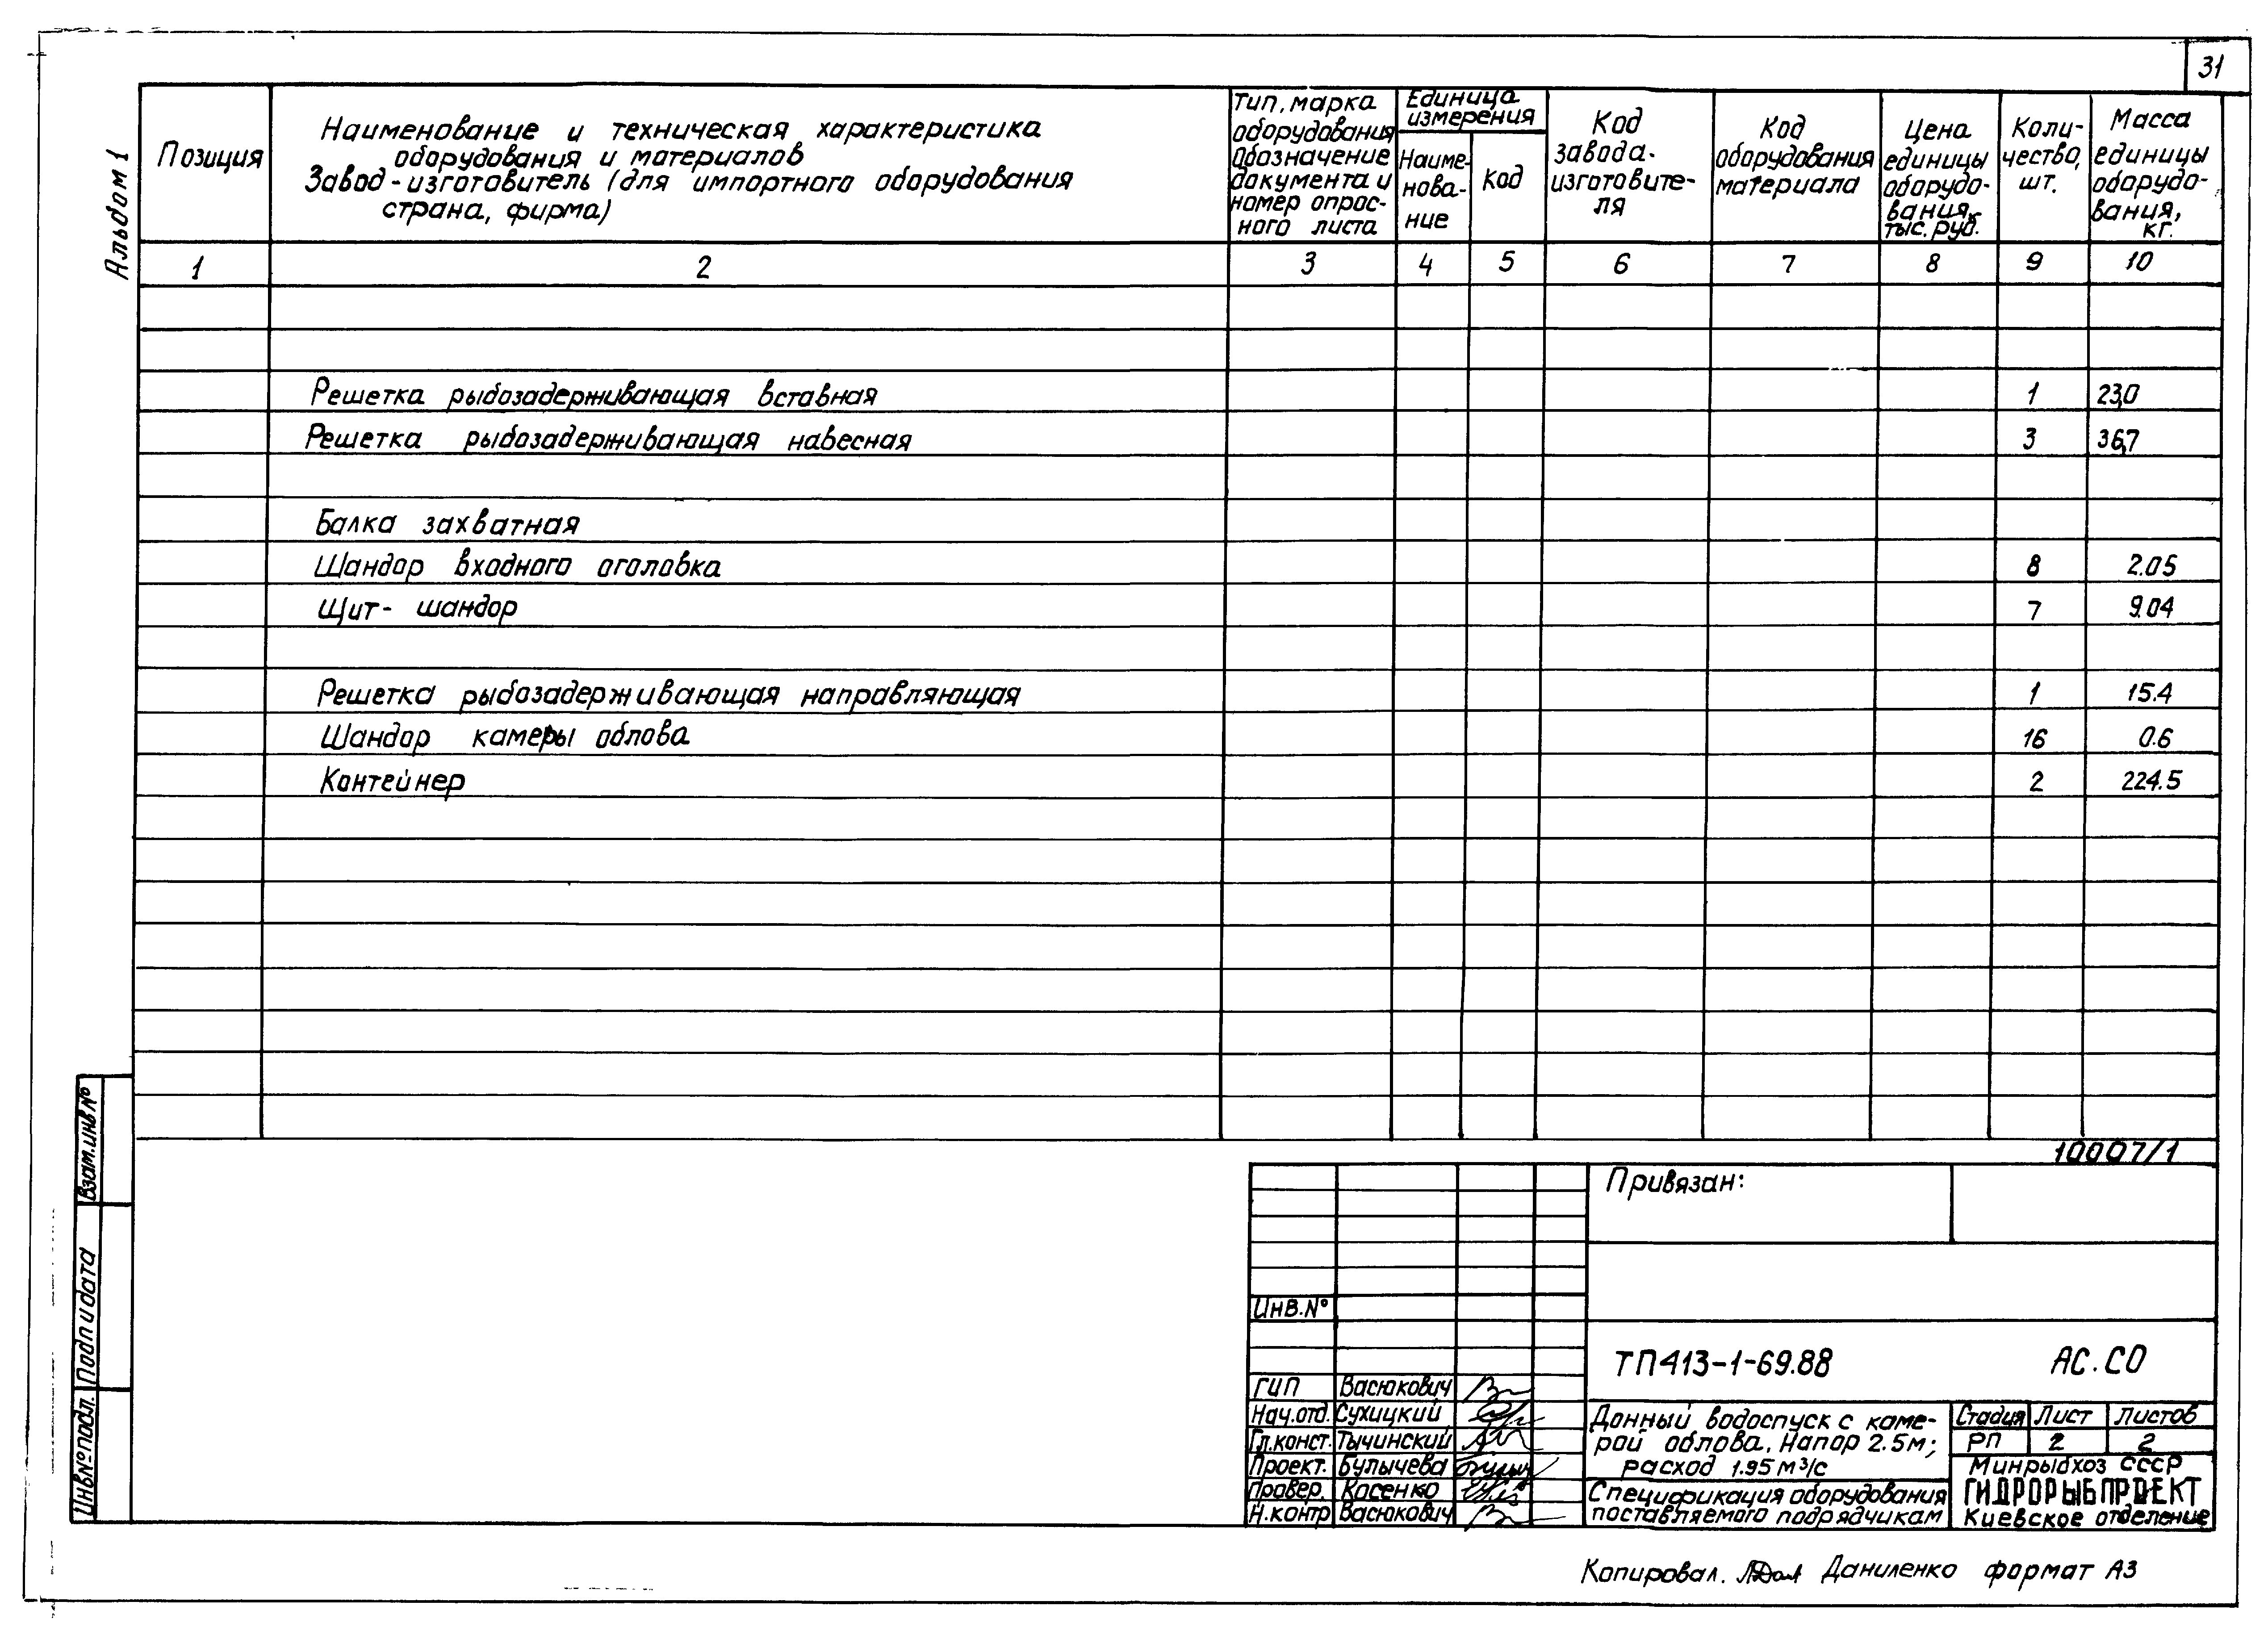 31
Альбом 1
Позиция
Наименование и техническая характеристика
оборудования и материалов
Завод-изготовитель (для импортного оборудования
страна, фирма)
Тип, марка
оборудования
Обозначение
документа и
номер опрос-
ного листа
Единица
измерения
Наиме-
нова-
ние
Код
Код
завода-
изготовите-
ля
Код
оборудования
материала
Цена
единицы
оборудо-
вания,
тыс. руб.
Коли-
чество,
шт.
Масса
единицы
оборудо-
вания,
кг.
1 2 3 4 5 6 7 8 9 10
Решетка рыбозадерживающая вставная 1 23,0
Решетка рыбозадерживающая навесная 3 36,7
Балка захватная
Шандор входного оголовка 8 2.05
Щит- шандор 7 9.04
Решетка рыбозадерживающая направляющая 1 15.4
Шандор камеры облова 16 0.6
Контейнер 2 224.5
10007/1
Привязан:
Инв.№
ТП413-1-69.88 АС.СО
ГИП Васюкович
Нач.отд. Сухицкий
Гл.конст. Тычинский
Проект. Булычева
Провер. Касенко
Н.контр Васюкович
Донный водоспуск с каме-
рой облова. Напор 2.5м;
расход 1.95 м³/с
Спецификация оборудования
поставляемого подрядчикам
Стадия Лист Листов
РП 2 2
Минрыбхоз СССР
ГИДРОРЫБПРОЕКТ
Киевское отделение
Взам.инв№
Подп и дата
Инв№подл.
Копировал. Даниленко формат А3